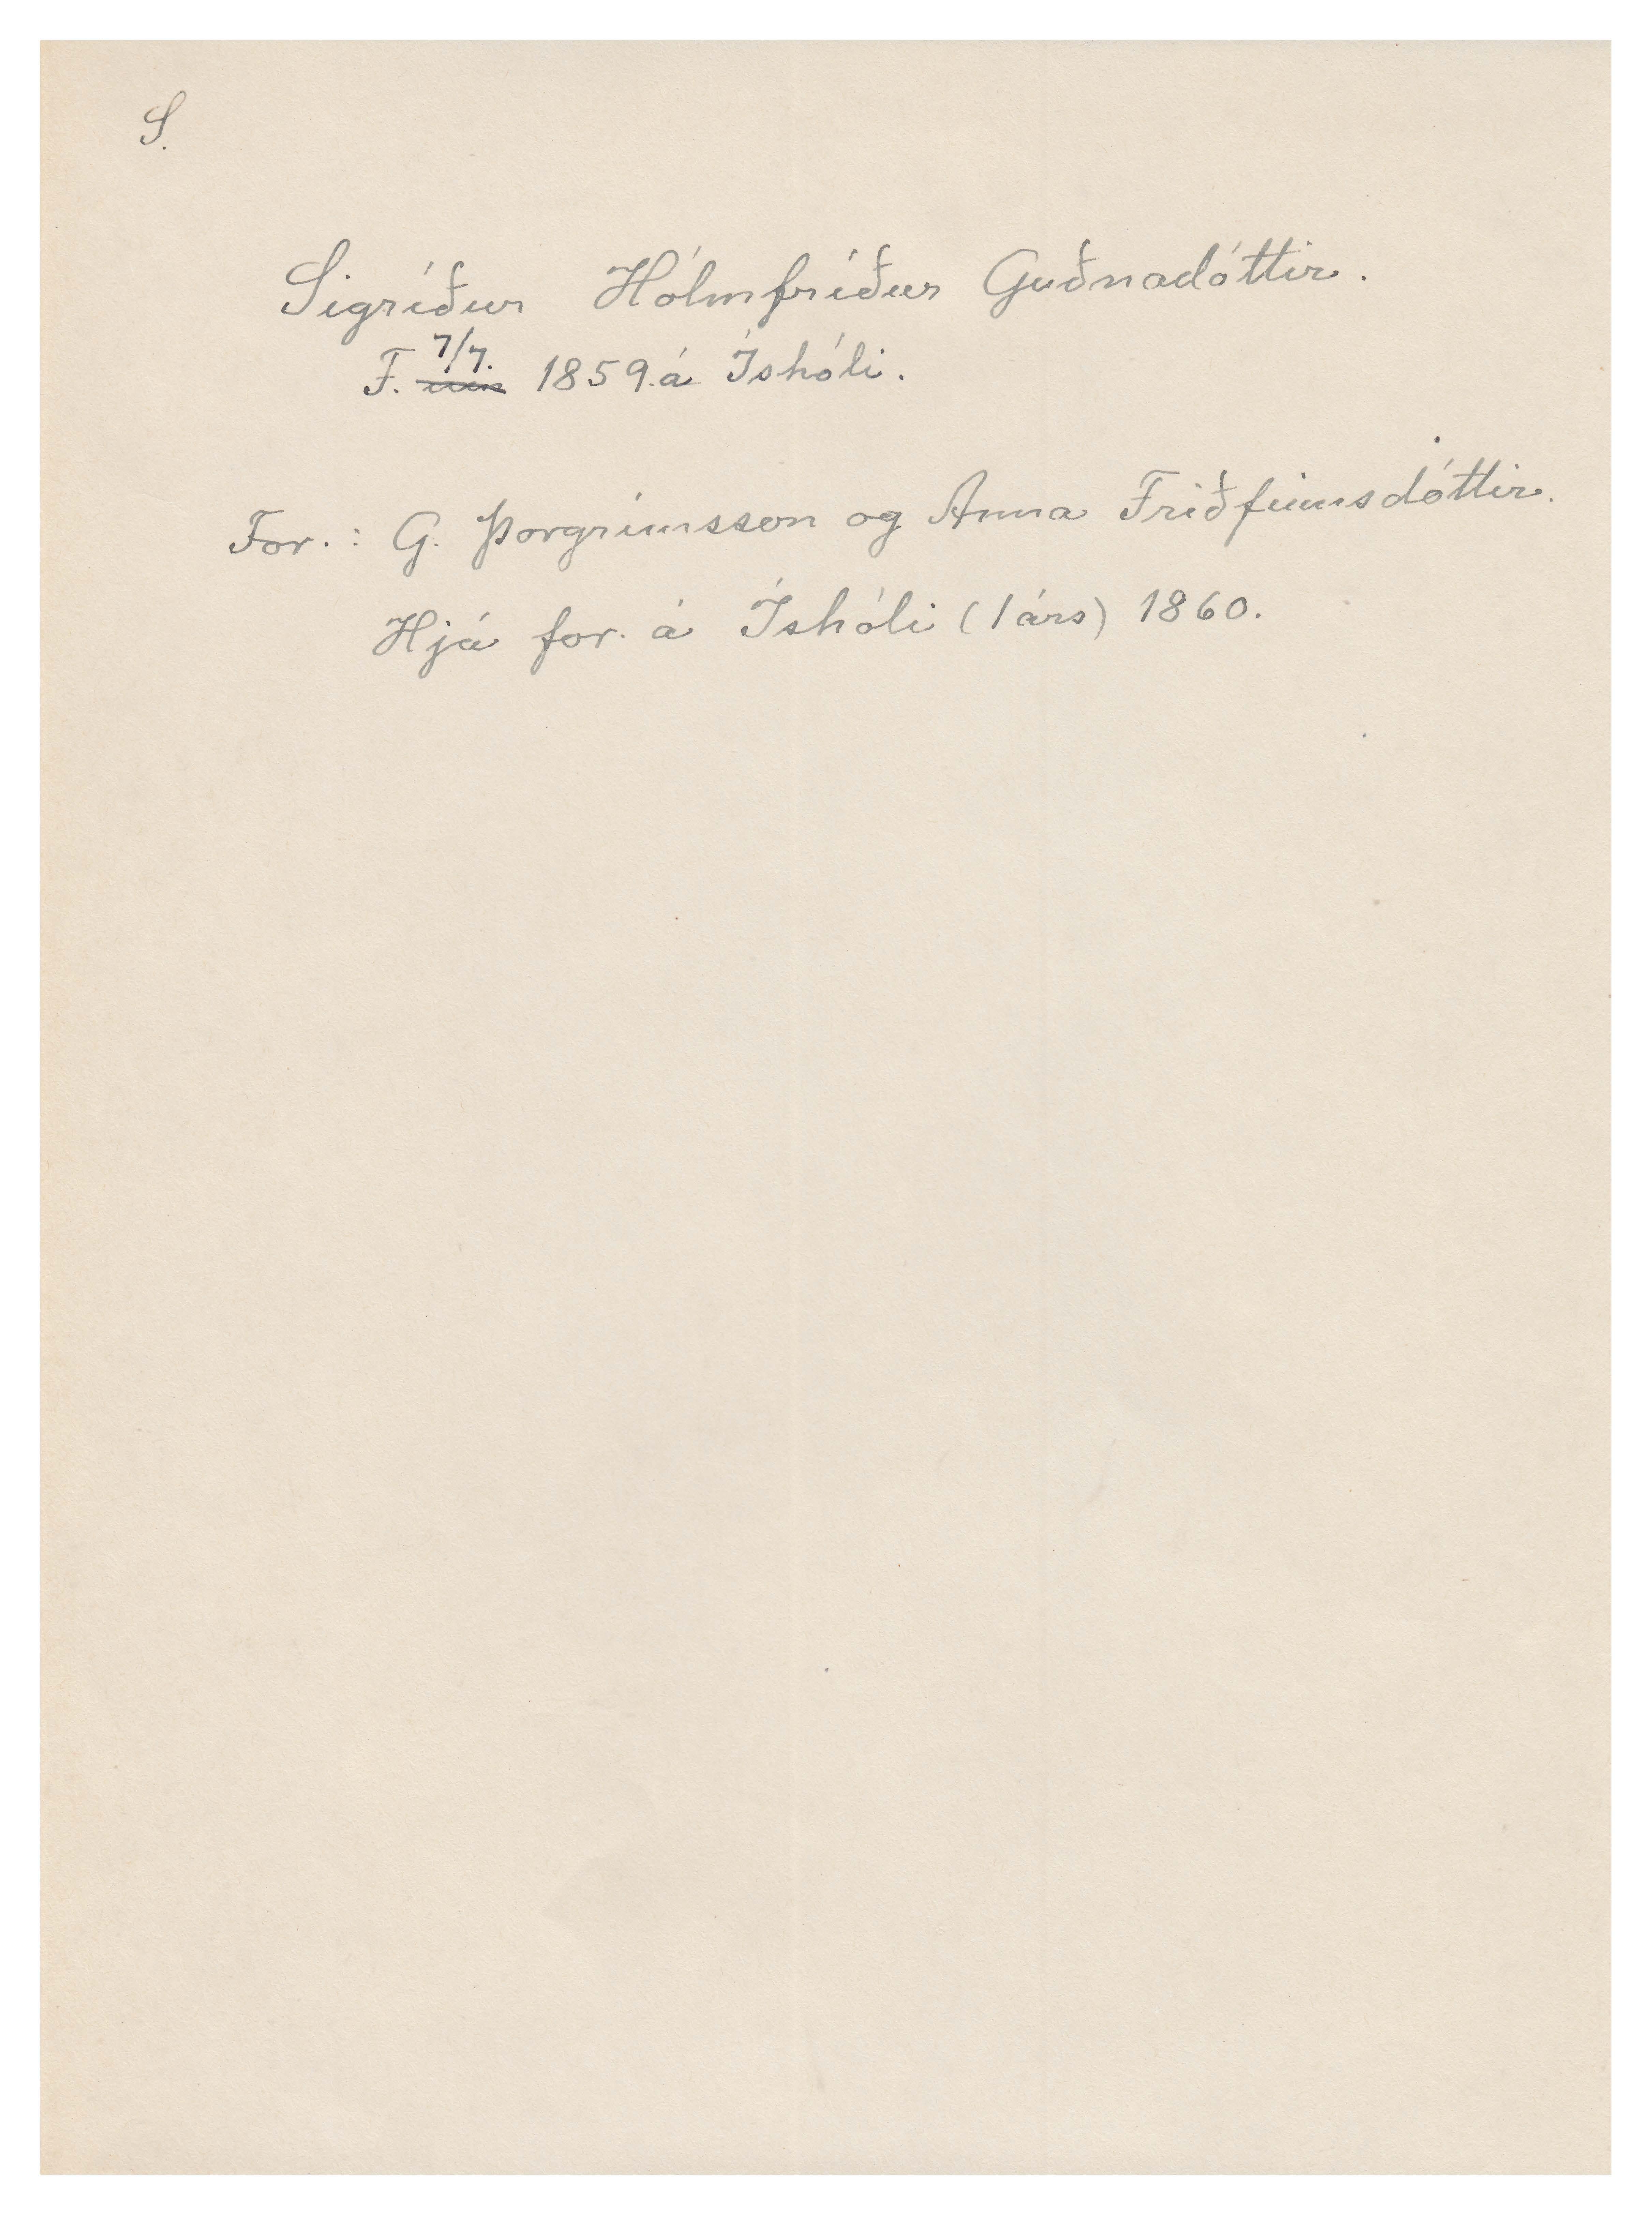 S.
Sigríður Hólmfríður Guðnadóttir.
F. 7/7. 1859 á Íshóli.
For.: G. Þorgrímsson og Anna Friðfinnsdóttir.
Hjá for. á Íshóli (1 árs) 1860.